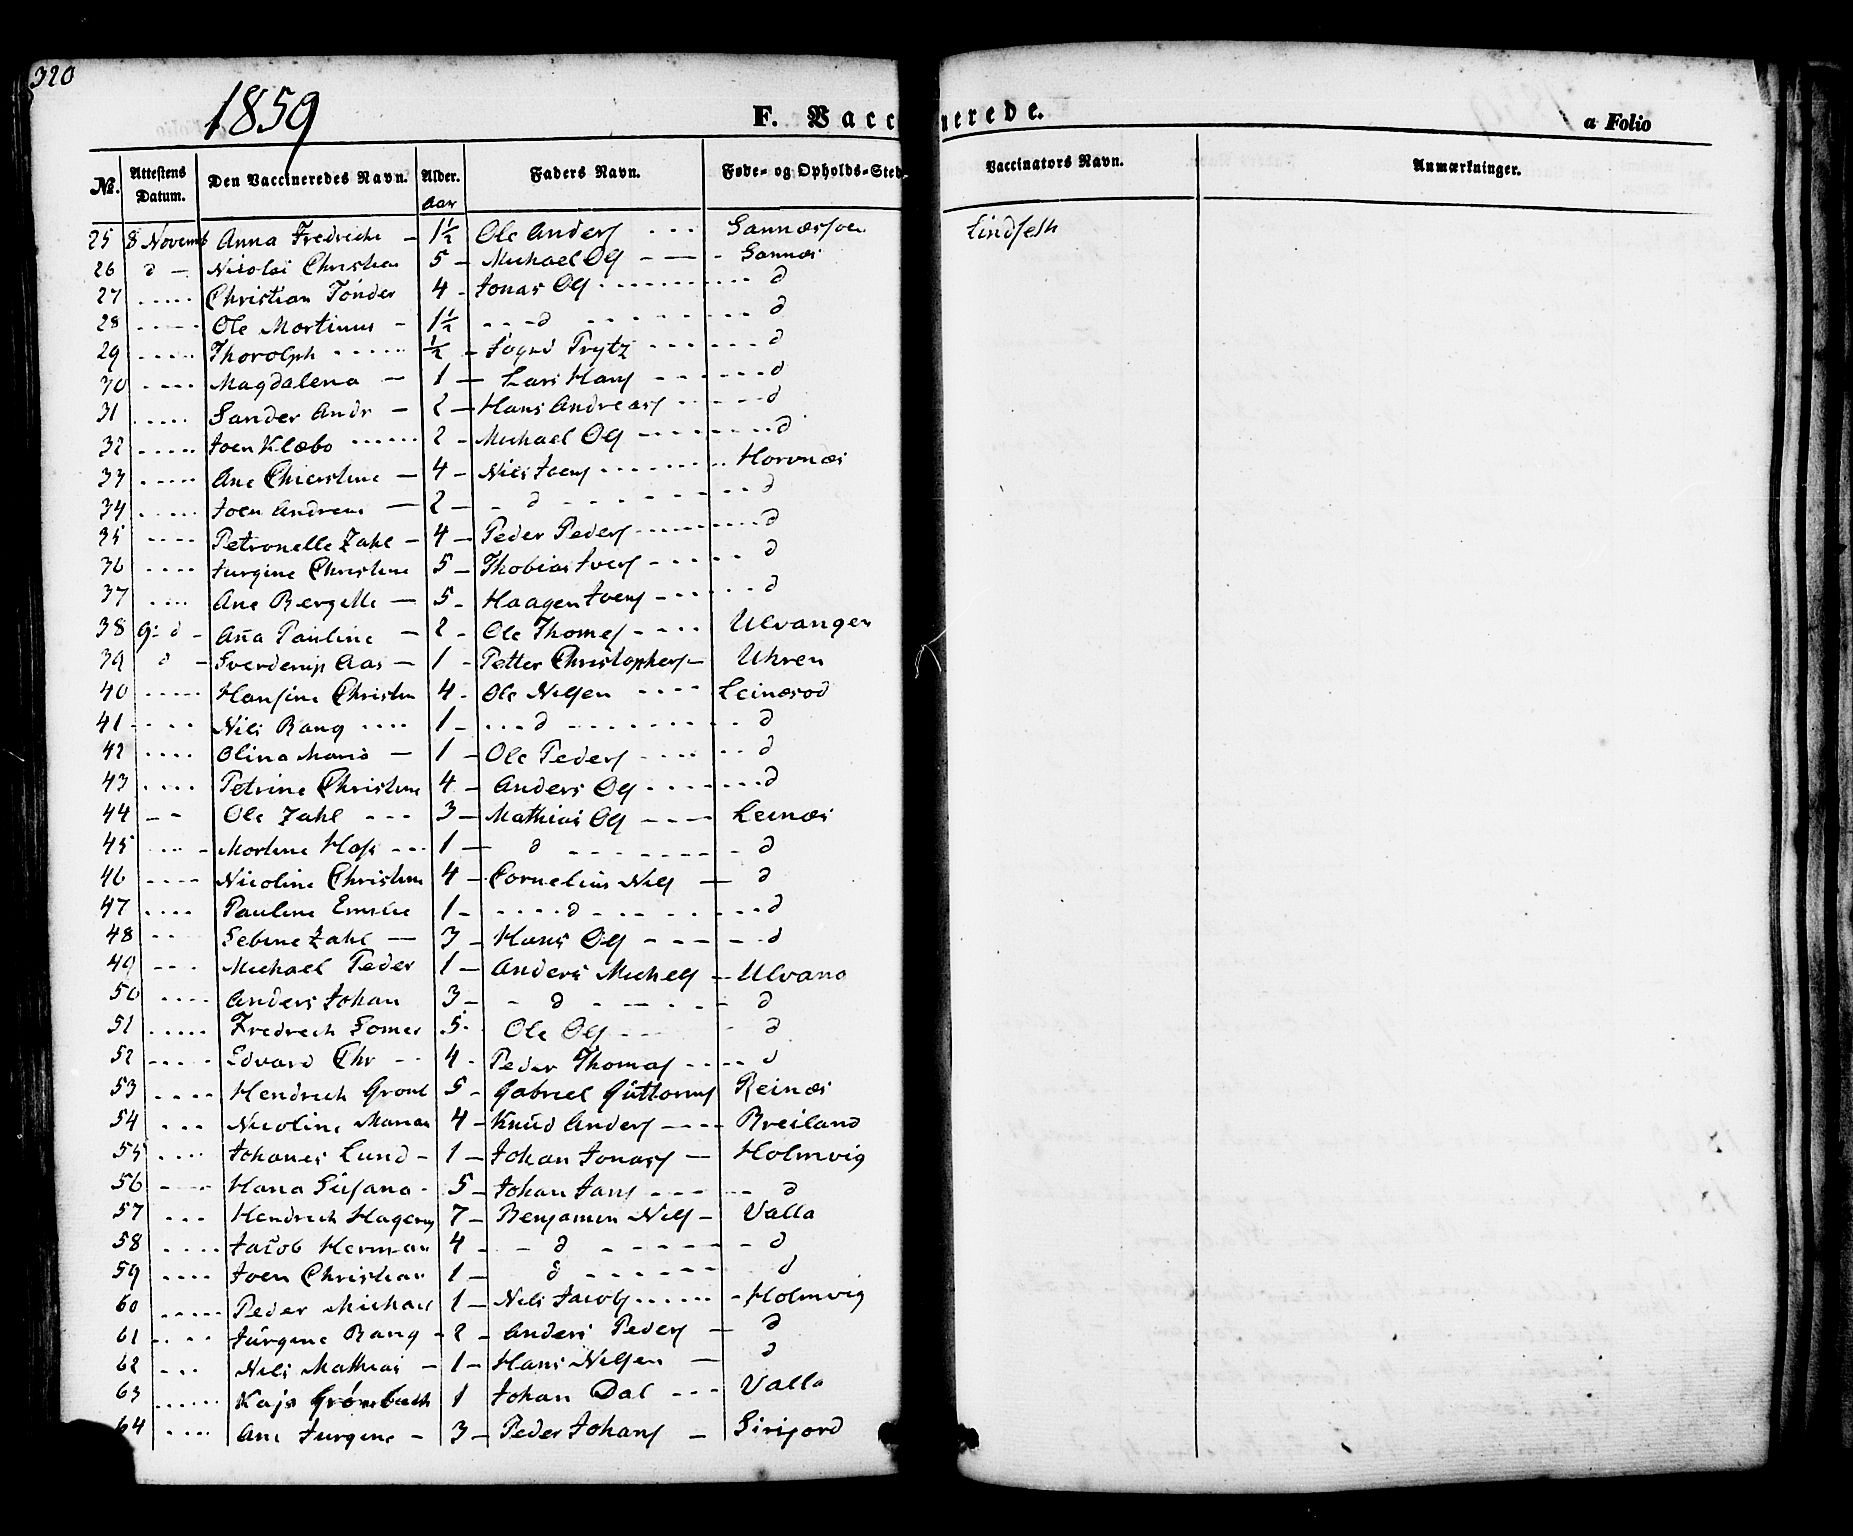 320
1859
F. Vaccinerede.
a Folio
No. Attestens Datum. Den Vaccineredes Navn. Alder. Faders Navn. Føde- og Opholds-Sted Vaccinators Navn. Anmærkninger.
Aar
25 8 Novemb Anna Fredrich - 1½ Ole Anders --- Lindseth
26 d - Nicolai Christian 5 - Michael Ols - — - Sannæs
27 ..... Christian Tönder 4 - Jonas Ols ........ d
28 ..... Ole Mortinus - 1½ ...d ........ d
29 ..... Thorolph ..... ½ - Trytz ...... d
30 .... Magdalena - 1 — Lars Hans ...... d
31 ..... Sander Andr - 2 — Hans Andreas ..... d
32 ..... Joen Klæbo ...... 2 - Michael Ols ........ d
33 ..... Ane Chierstine - 4 - Nils Joens ........ Horvnæs
34 ..... Joen Andreas — 2 — - d - ...... d
35 .... Petronelle Zahl - 4 - Peder Peders ........ d
36 .... Jurgine Christine 5 - Thobias Ivers ...... d
37 .... Ane Bergitte — 5 - Haagen Joens ...... d
38 9: d - Ana Pauline - 2 - Ole Thomes .... Ulvangen
39 d - Sverdrup Aas - 1 - Petter Christophers - Uhren
40 ..... Hansine Christin 4 - Ole Nilsen .... Leinesod
41 .... Nils Bang .... 1 - ...d ........ d
42 .... Olina Maria - 1 - Ole Peders ...... d
43 .... Petrine Christine 4 - Anders Ols ....... d
44 - - Ole Zahl --- 3 - Mathias Ols ---- Leinæs
45 ... - Mortine --- 1 - d ....... d
46 .... Nicoline Christine 4 - Cornelius Nils — d
47 .... Pauline Emilie 1 - ....d ....... d
48 ... Sebine Zahl — 3 - Hans Ols ---- d
49 ... Michael Peder 1 - Anders Michels - Ulvang
50 .... Anders Johan 3 - - d ...... d
51 ..... Fredrich 5 - Ole Ols --- - d
52 ..... Edvard Chr -- 4 - Peder Thomas .... d
53 .... Hendrich 5 - Gabriel Guttorms Reinæs
54 ... Nicoline 4 - Knud Anders ---- Breiland
55 .... Johanes Lund - 1 - Johan Jonas - Holmvig
56 .... Hana Susana - 5 - Johan Jans ..... d
57 ... Hendrich 7 - Benjamin Nils - Valla
58 .... Jacob Herman 4 - - d ....... d
59 .... Joen Christian 1 - d ...... d
60 ..... Peder Michael 1 - Nils Jacobs ...... - Holmvig
61 .... Jürgine Bang - 2 - Anders Peders - d
62 ... Nils Mathias - 1 - Hans Nilsen - d
63 ...... Kaja Grönbech 1 Johan Dal --- Valla
64 .... Ane Jurgine - 3 - Peder Johans -